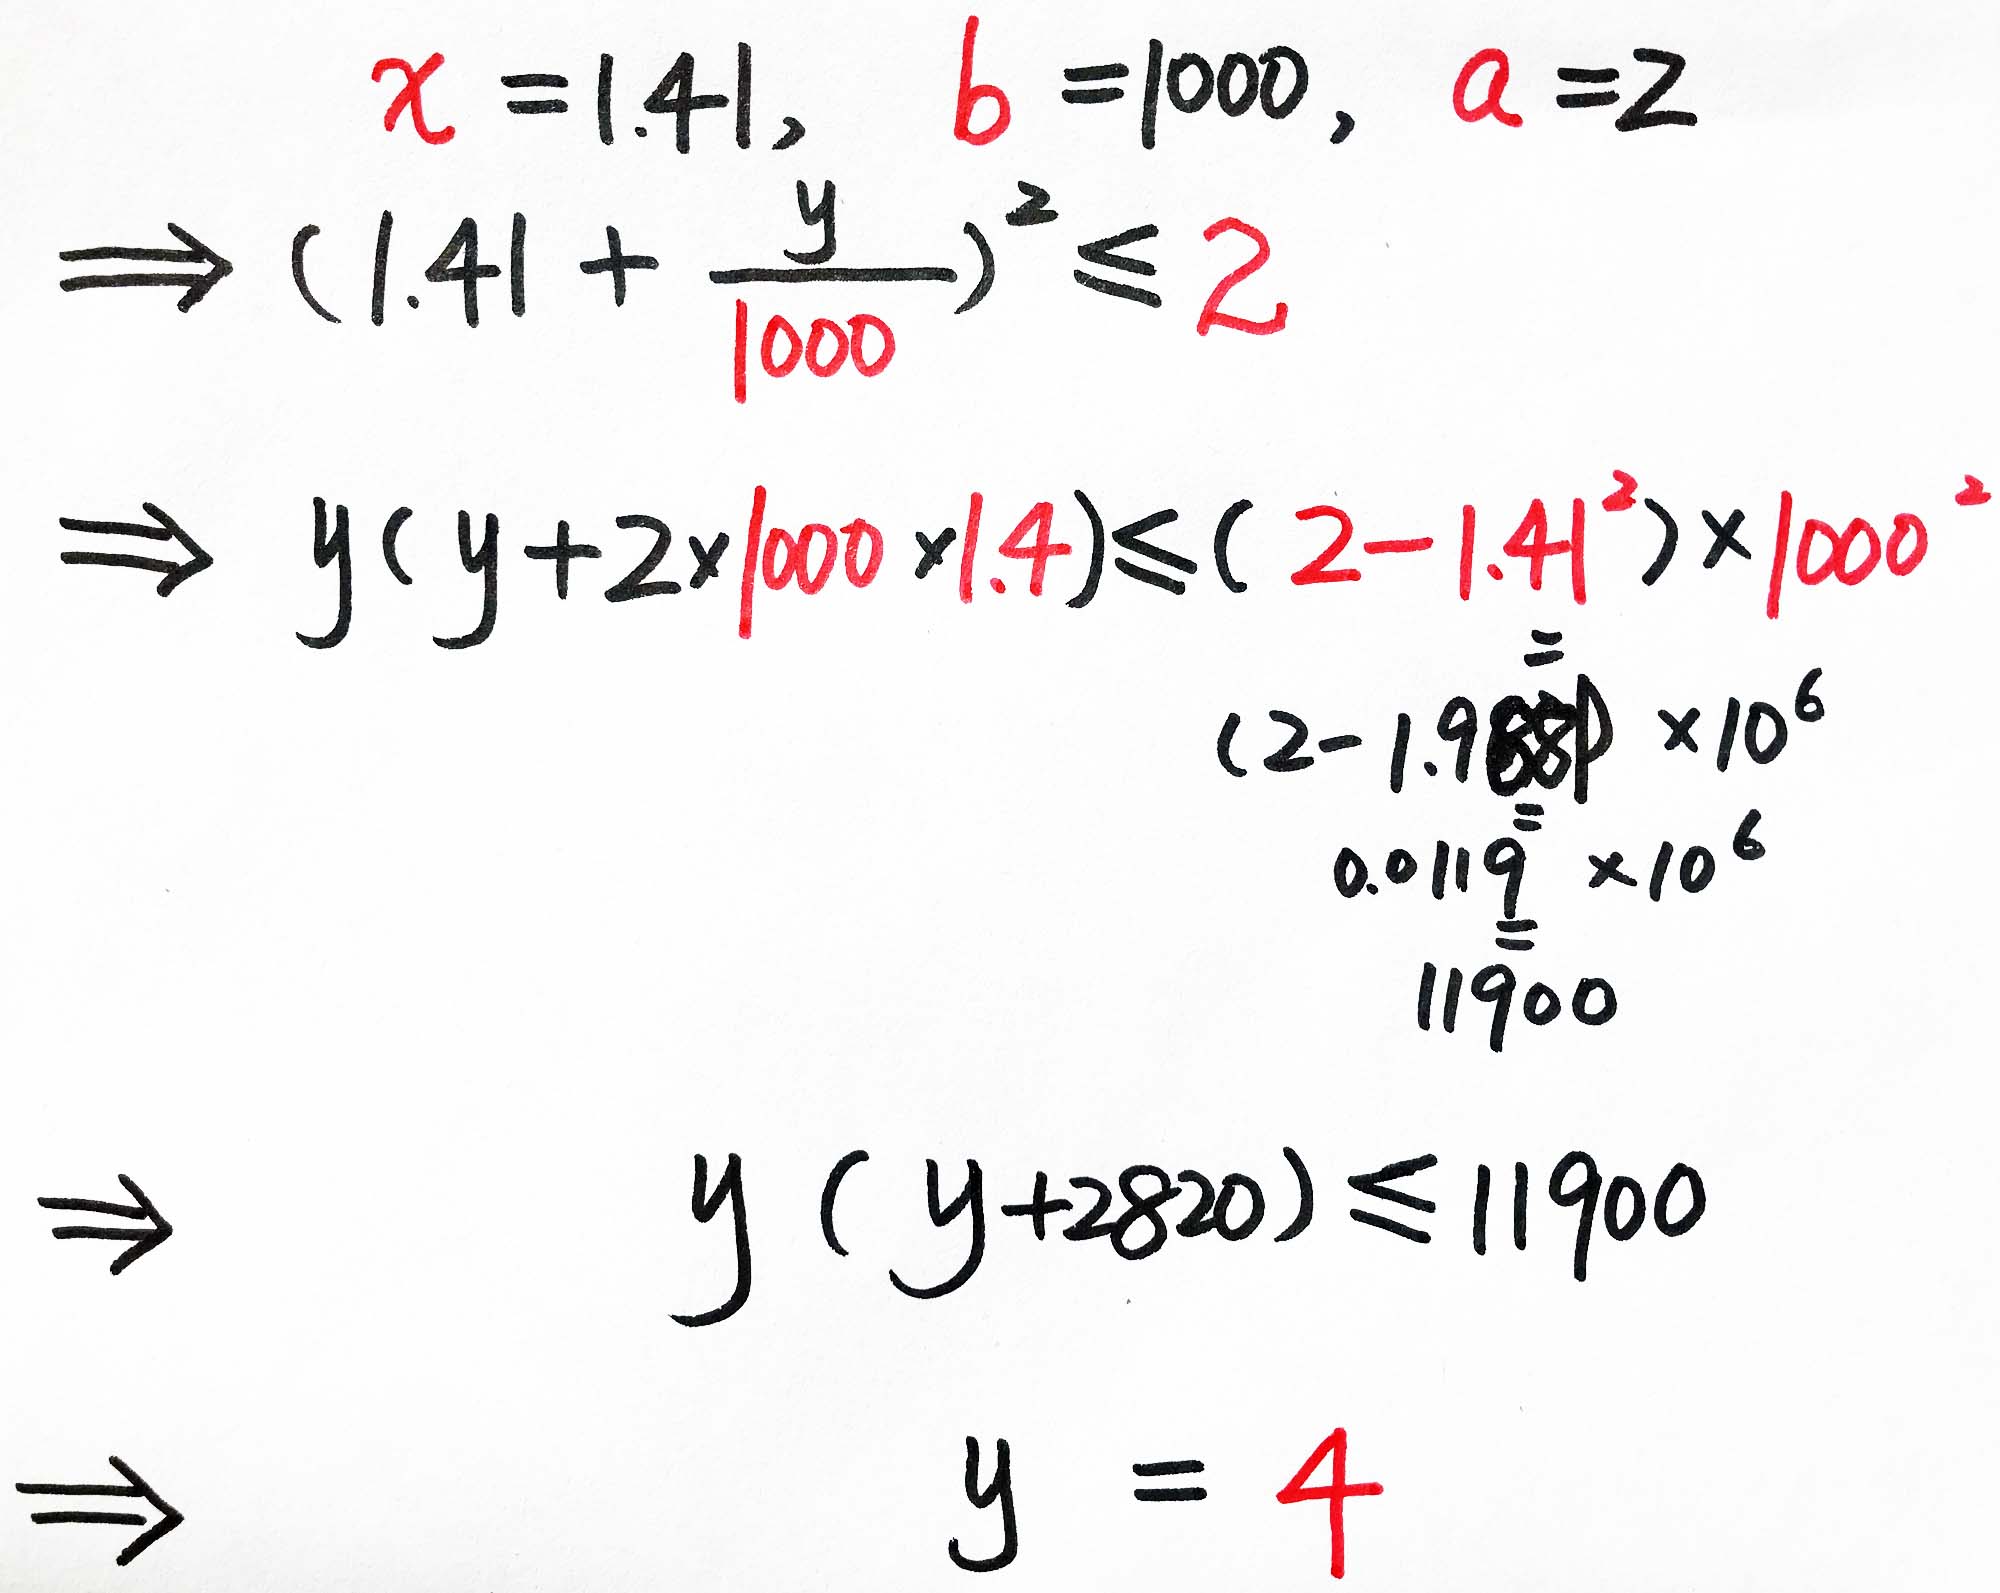 x = 1.41, b = 1000, a = 2
⇒ (1.41 + y/1000)² ≤ 2
⇒ y(y+2×1000×1.4) ≤ (2-1.41²)×1000²
=
(2-1.9881) ×10⁶
=
0.0119 ×10⁶
=
11900
⇒ y(y+2820) ≤ 11900
⇒ y = 4